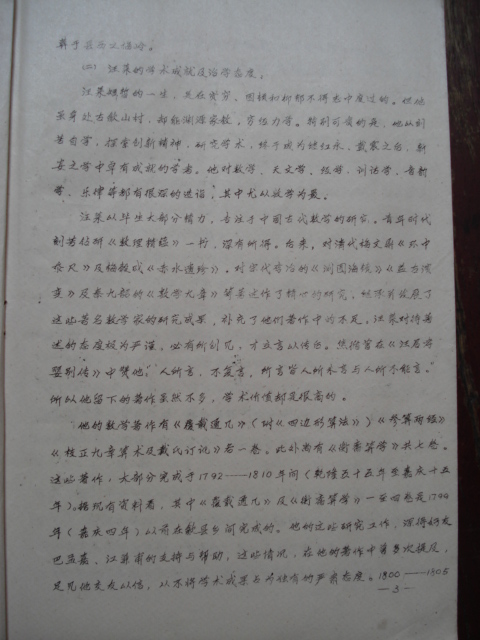 葬于县西之信岭。
(二) 汪莱的学术成就及治学态度。
汪莱短暂的一生，是在贫穷、困顿和抑郁不得志中度过的。但他
采身处古歙山村，却能渊源家教，穷经力学。特别可贵的是，他从刻
苦自学，探索创新精神，研究学术，终于成为继江永、戴震之后，新
安之学中卓有成就的学者。他对数学、天文学、经学、训诂学、音韵
学、乐律等都有很深的造诣，其中尤以数学为最。
汪莱以毕生大部分精力，专注于中国古代数学的研究。青年时代
刻苦钻研《数理精蕴》一书，深有所得。后来，对清代梅文鼎《环中
黍尺》及梅瑴成《赤水遗珍》，对宋代李冶的《测圆海镜》《益古演
段》及秦九韶的《数学九章》等算书作了精心的研究，继承并发展了
这些著名数学家的研究成果，补充了他们著作中的不足。汪莱对待著
述的态度极为严谨，必有所创见，才立言以传世。焦循曾在《江君前
婴别传》中赞他：人所言，不复言，所言皆人所未言与人所不能言。
所以他留下的著作虽然不多，学术价值都是很高的。
他的数学著作有《覆载通几》(附《四边形算法》)《参算两经》
《校正九章算术及戴氏订讹》各一卷。此外尚有《衡斋算学》共七卷。
这些著作，大部分完成于1792——1810年间(乾隆五十五年至嘉庆十五
年)。据现有资料看，其中《覆载通几》及《衡斋算学》一至四卷是1799
年(嘉庆四年)以前在歙县乡间完成的。他的这些研究工作，深得好友
巴孟嘉、江莱甫的支持与帮助，这些情况，在他的著作中曾多次提及，
足见他交友以信，从不将学术成果占为独有的严肃态度。1800——1805
—3—